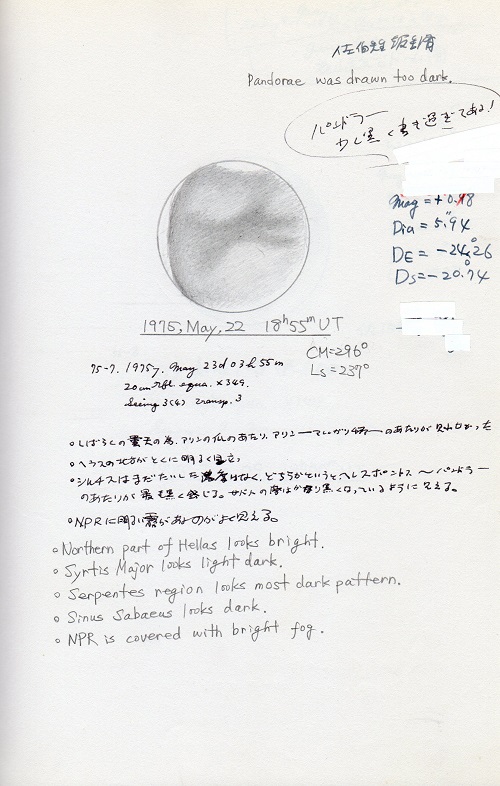 Pandorae was drawn too dark.
パンドラー
少し黒く書き過ぎてある!
Mag = +0.48
Dia = 5".94
DE = -24.°26
DS = -20.°74
1975, May, 22 18h55m UT
CM=296°
LS=237°
75-7. 1975y. May 23d 03h55m
20cm rfl. equa. ×349.
Seeing 3(4) transp. 3
。しばらくの曇天の為、アリンの爪のあたり、アリン—
のあたりが見れなかった
。ヘラスの北方がとくに明るく目立つ
。シルチスはまだたいした濃度はなく、どちらかというとヘレスポントス〜パンドラー
のあたりが最も黒く感じる。
黒くなっているように見える。
。NPRに明るい霧があるのがよく見える。
。Northern part of Hellas looks bright.
。Syrtis Major looks light dark.
。Serpentes region looks most dark pattern.
。Sinus Sabaeus looks dark.
。NPR is covered with bright fog.